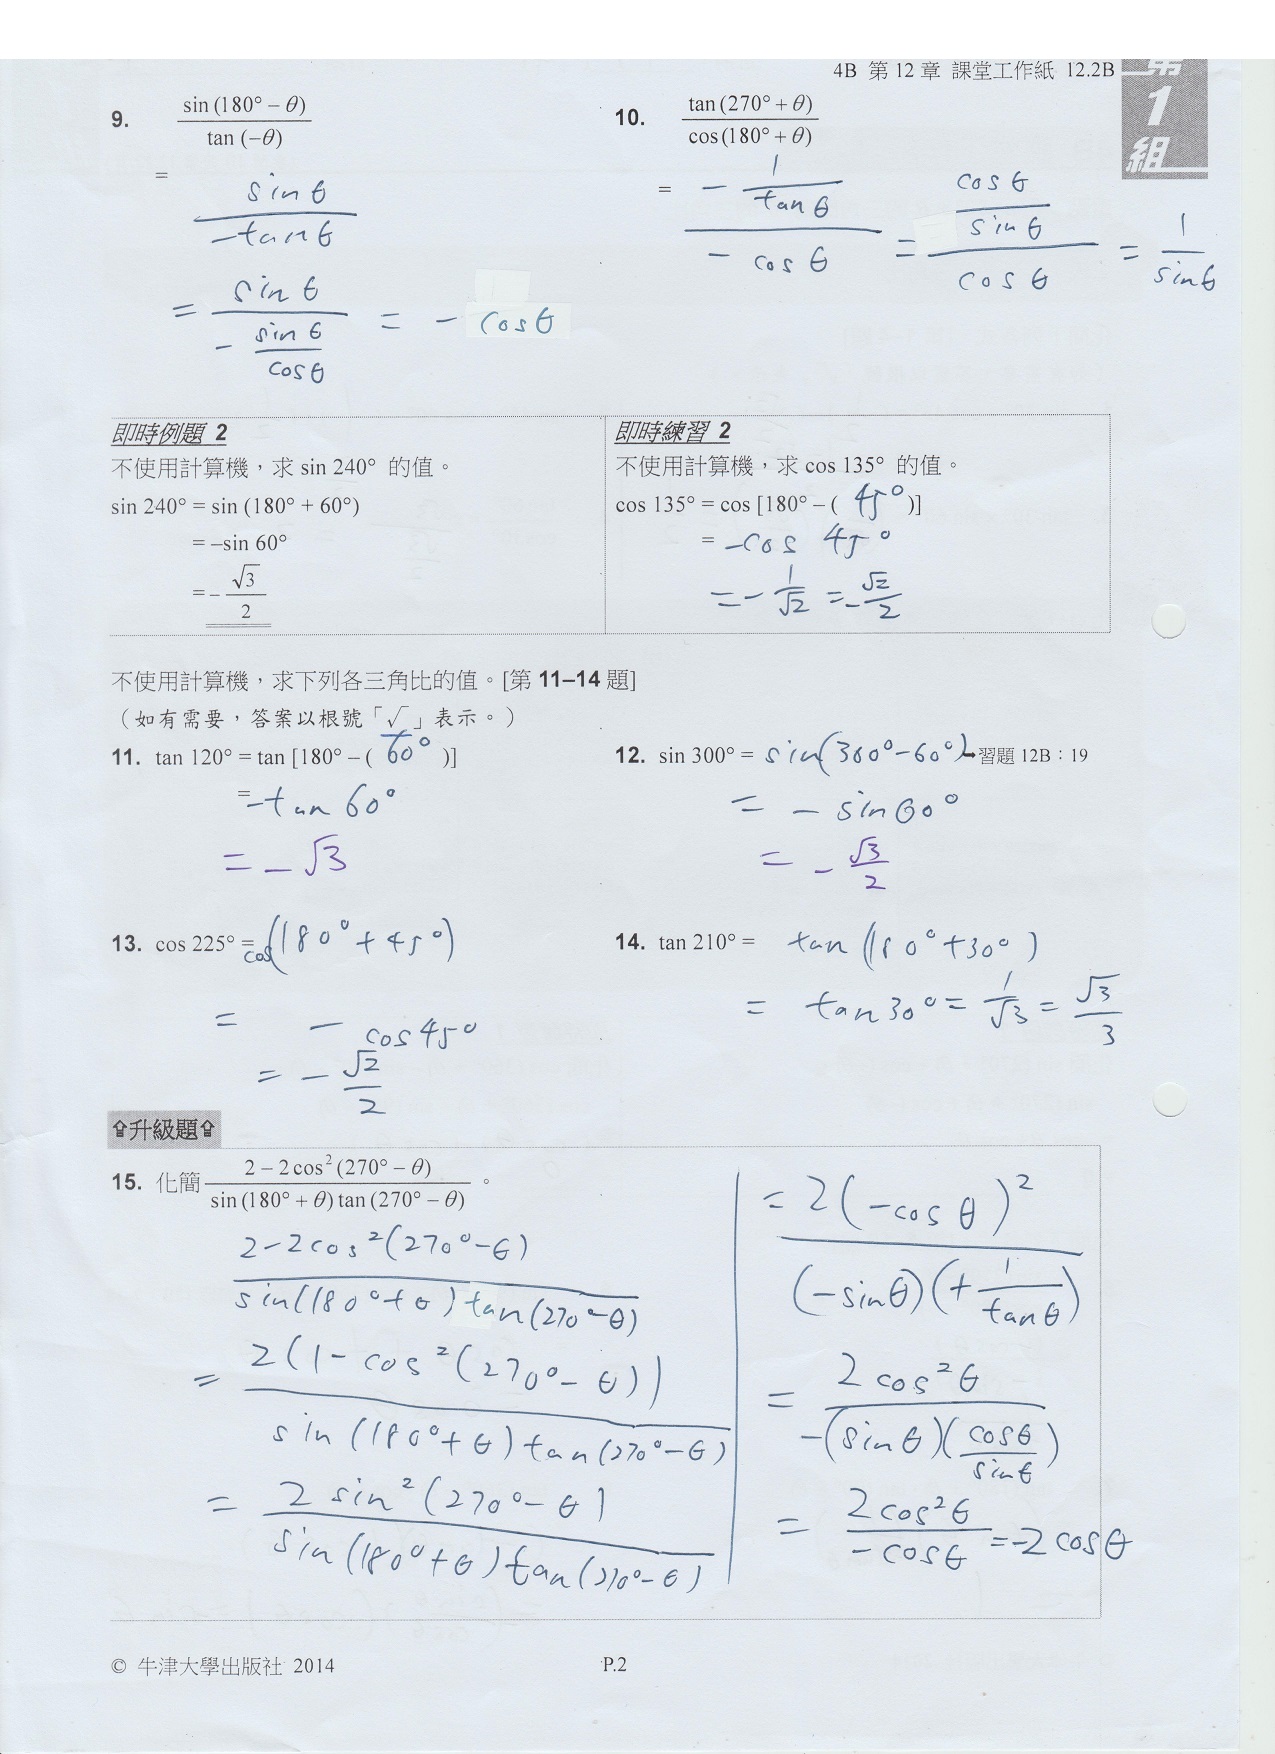 4B 第 12 章 課堂工作紙 12.2B
第
1
組
9. sin (180° − θ) / tan (−θ)
= sinθ / −tanθ
= sinθ / − sinθ/cosθ = − cosθ
10. tan (270° + θ) / cos (180° + θ)
= − 1/tanθ / − cosθ = cosθ/sinθ / cosθ = 1/sinθ
即時例題 2
不使用計算機，求 sin 240° 的值。
sin 240° = sin (180° + 60°)
= –sin 60°
= – √3/2
即時練習 2
不使用計算機，求 cos 135° 的值。
cos 135° = cos [180° – ( 45° )]
= −cos 45°
= − 1/√2 = − √2/2
不使用計算機，求下列各三角比的值。[第 11–14 題]
（如有需要，答案以根號「√」表示。）
11. tan 120° = tan [180° – ( 60° )]
= −tan 60°
= − √3
12. sin 300° = sin(360°−60°) ➥習題 12B：19
= − sin60°
= − √3/2
13. cos 225° = cos(180°+45°)
= − cos45°
= − √2/2
14. tan 210° = tan(180°+30°)
= tan30° = 1/√3 = √3/3
⇧升級題⇧
15. 化簡 2 − 2cos²(270° − θ) / sin (180° + θ) tan (270° − θ) 。
2−2cos²(270°−θ) / sin(180°+θ)tan(270°−θ)
= 2(1−cos²(270°−θ)) / sin(180°+θ)tan(270°−θ)
= 2sin²(270°−θ) / sin(180°+θ)tan(270°−θ)
= 2(−cosθ)² / (−sinθ)(+ 1/tanθ)
= 2cos²θ / −(sinθ)(cosθ/sinθ)
= 2cos²θ / −cosθ = −2cosθ
© 牛津大學出版社 2014
P.2